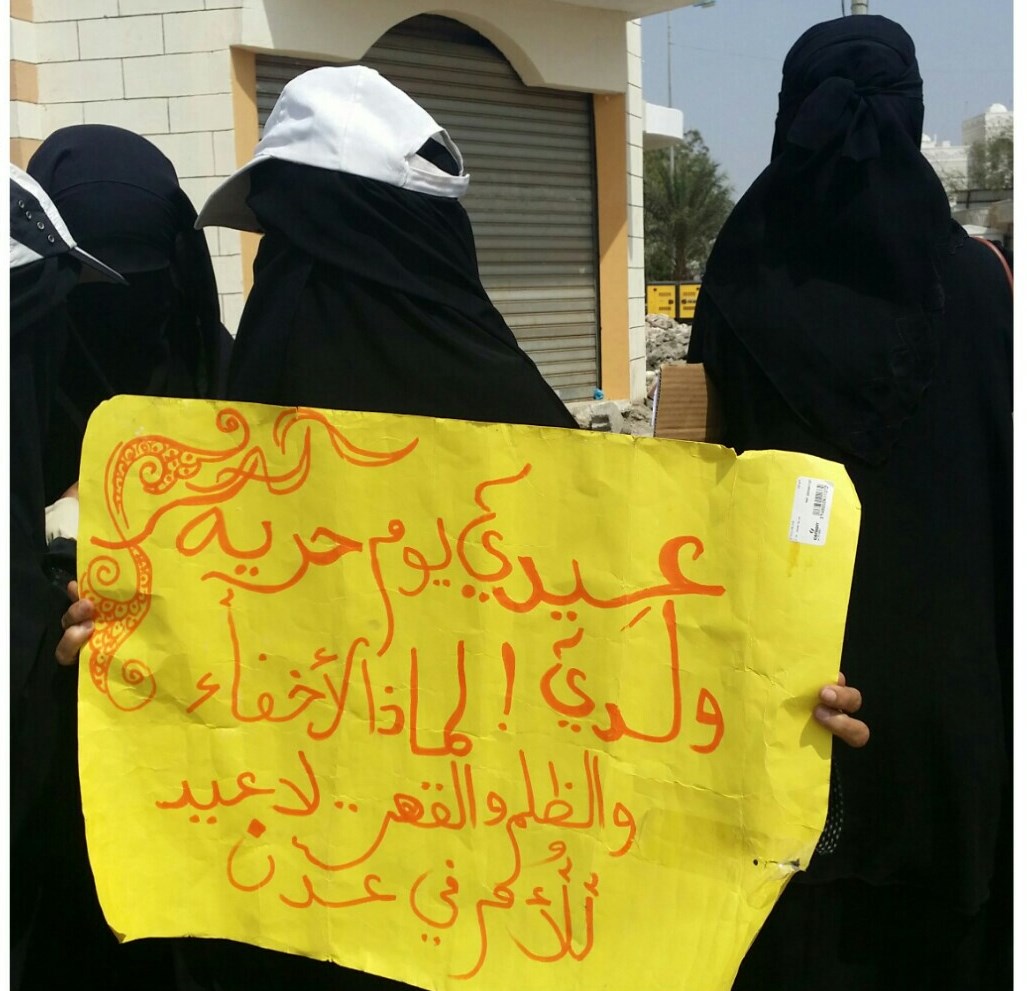 عيدي يوم حرية
ولدي ! لماذا الأخفاء
والظلم والقهر .. لا عيد
للأم في عدن